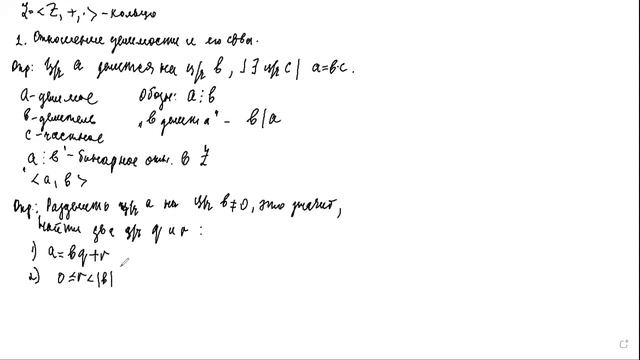 Z = <Z, +, ·> - кольцо
1. Отношение делимости и его св-ва.
Опр: Цч a делится на цч b, если ∃ цч c | a = b·c.
a - делимое Обозн: a ⋮ b
b - делитель „b делит a“ - b | a
c - частное
"a ⋮ b" - бинарное отн. в Z
<a, b>
Опр: Разделить цч a на цч b ≠ 0, это значит,
найти два цч q и r :
1) a = bq + r
2) 0 ≤ r < |b|